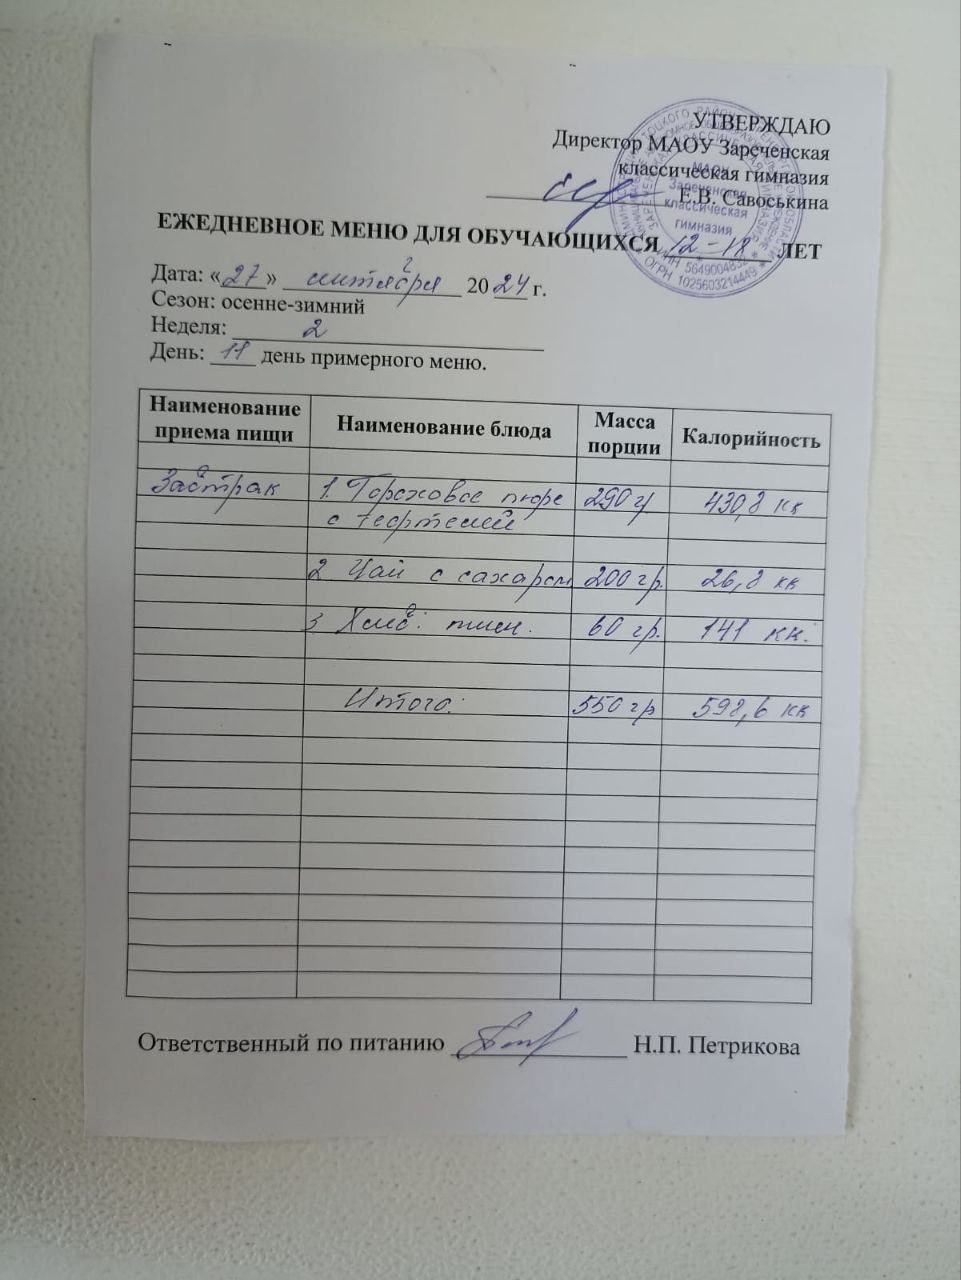 УТВЕРЖДАЮ
Директор МАОУ Зареченская
классическая гимназия
Е.В. Савоськина
МАОУ
Зареченская
классическая
гимназия
ИНН 5649004832
ОГРН 1025603214449
ЕЖЕДНЕВНОЕ МЕНЮ ДЛЯ ОБУЧАЮЩИХСЯ 12-18 ЛЕТ
Дата: «27» сентября 2024 г.
Сезон: осенне-зимний
Неделя: 2
День: 11 день примерного меню.
Наименование приема пищи Наименование блюда Масса порции Калорийность
Завтрак 1. Гороховое пюре 290 гр 430,8 кк
с тефтелей
2 Чай с сахаром 200 гр. 26,8 кк
3 Хлеб: пшен. 60 гр. 141 кк.
Итого: 550 гр 598,6 кк
Ответственный по питанию Н.П. Петрикова